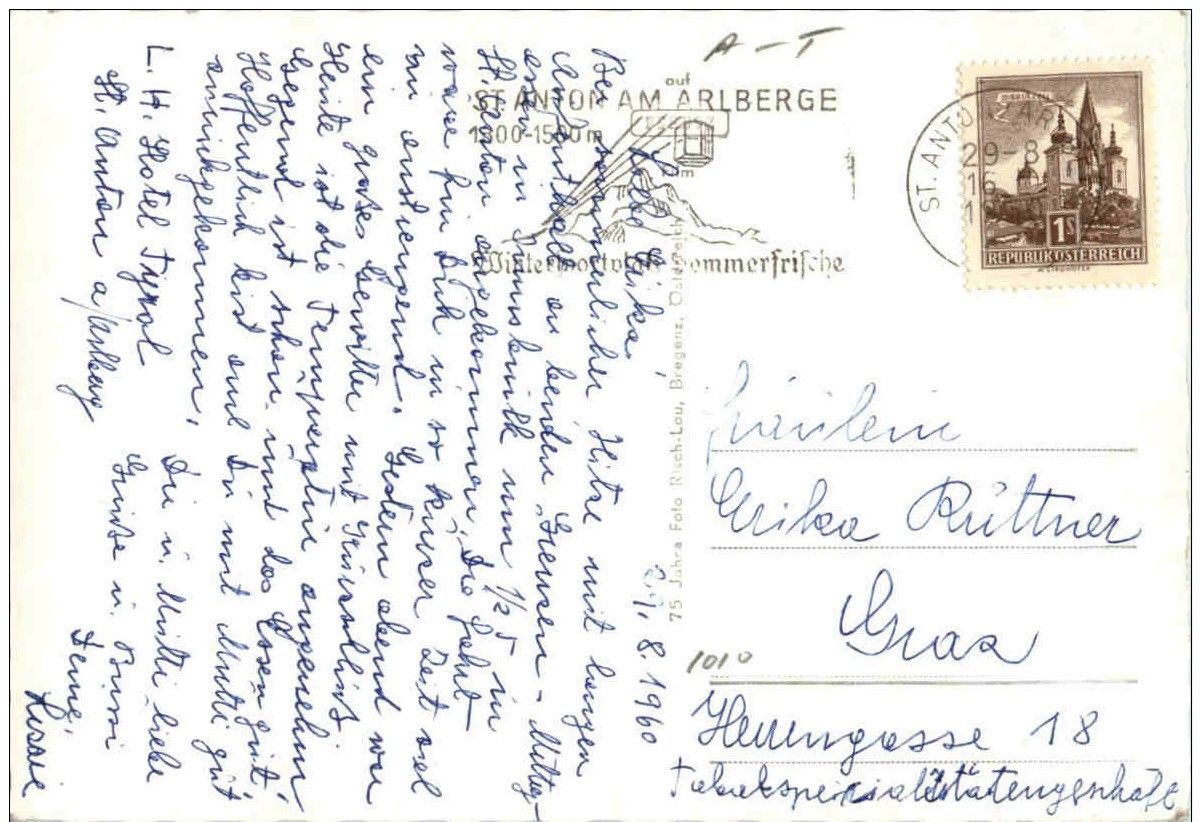 A-T
auf
ST. ANTON AM ARLBERGE
1300-1500 m
Wintersportplatz Sommerfrische
ST. ANTON AM AR
29-8
16
MARIAZELL
1S
REPUBLIK OSTERREICH
75 Jahre Foto Risch-Lau, Bregenz, Österreich
29. 8. 1960
Liebe Erika,
Bei sommerlicher Hitze mit langem
Aufenthalt an beiden Grenzen - Mittag-
essen in Innsbruck um 1/2 5 in
St. Anton angekommen. Die Fahrt
wäre für Dich in so kurzer Zeit viel
zu anstrengend. Gestern abend war
ein großes Gewitter mit
Heute ist die Temperatur angenehm,
Gegend ist schön und das Essen gut,
Hoffentlich bist auch Du mit Mutti gut
zurückgekommen,
L. H. Hotel Tyrol
St. Anton a/Arlberg
Dir u. Mutti liebe
Grüße u. Bussi
Deine
Fräulein
Erika Rüttner
Graz
1010
Herrengasse 18
Tabakspezialitätengeschäft